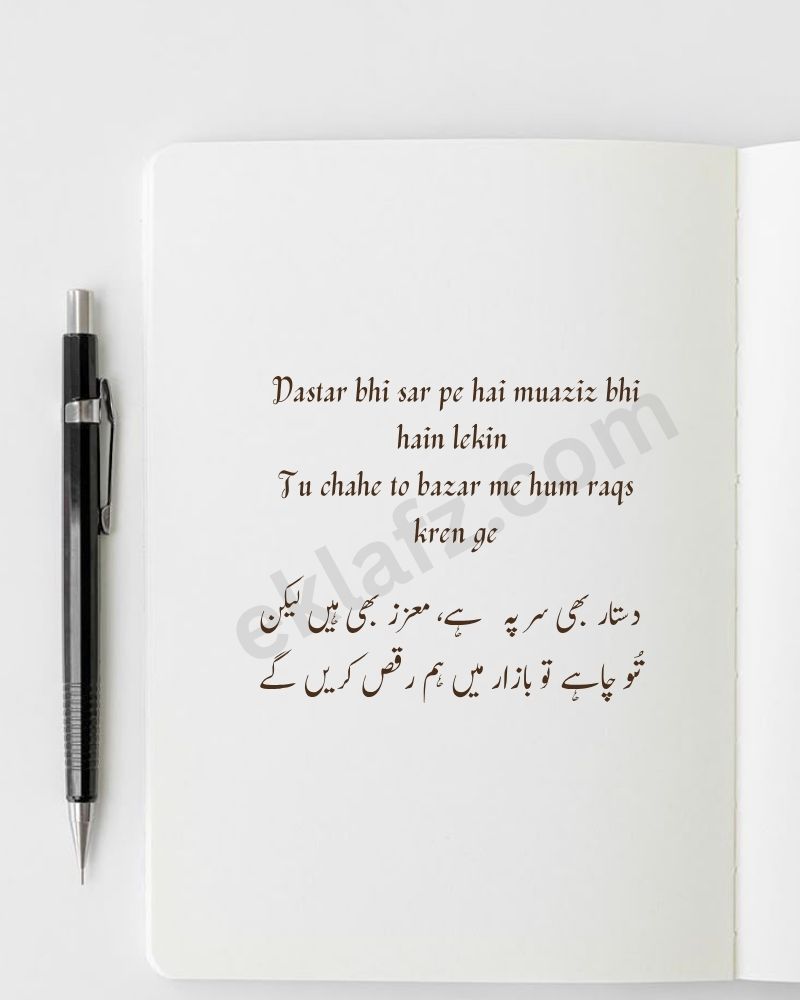 Dastar bhi sar pe hai muaziz bhi
hain lekin
Tu chahe to bazar me hum raqs
kren ge
دستار بھی سر پہ ہے، معزز بھی ہیں لیکن
تُو چاہے تو بازار میں ہم رقص کریں گے
eklafz.com